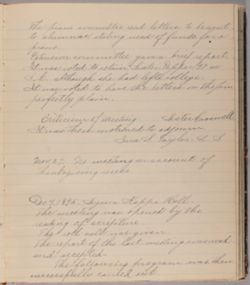 The piano committee said letters to be sent
to alumnae stating need of funds for a
piano.
committee gave a brief report.
It was voted to
S. C. although she had left college.
It was voted to have the letters on the pin
perfectly plain.
Criticism of meeting
It was then motioned to adjourn
Taylor
Nov. 27. No meeting on account of
Thanksgiving week.
Dec. 7, 1896. Sigma Kappa Hall.
The meeting was opened by the
reading of scripture.
The roll call not given
The report of the last meeting was read
and accepted.
The following program was then
successfully carried out.